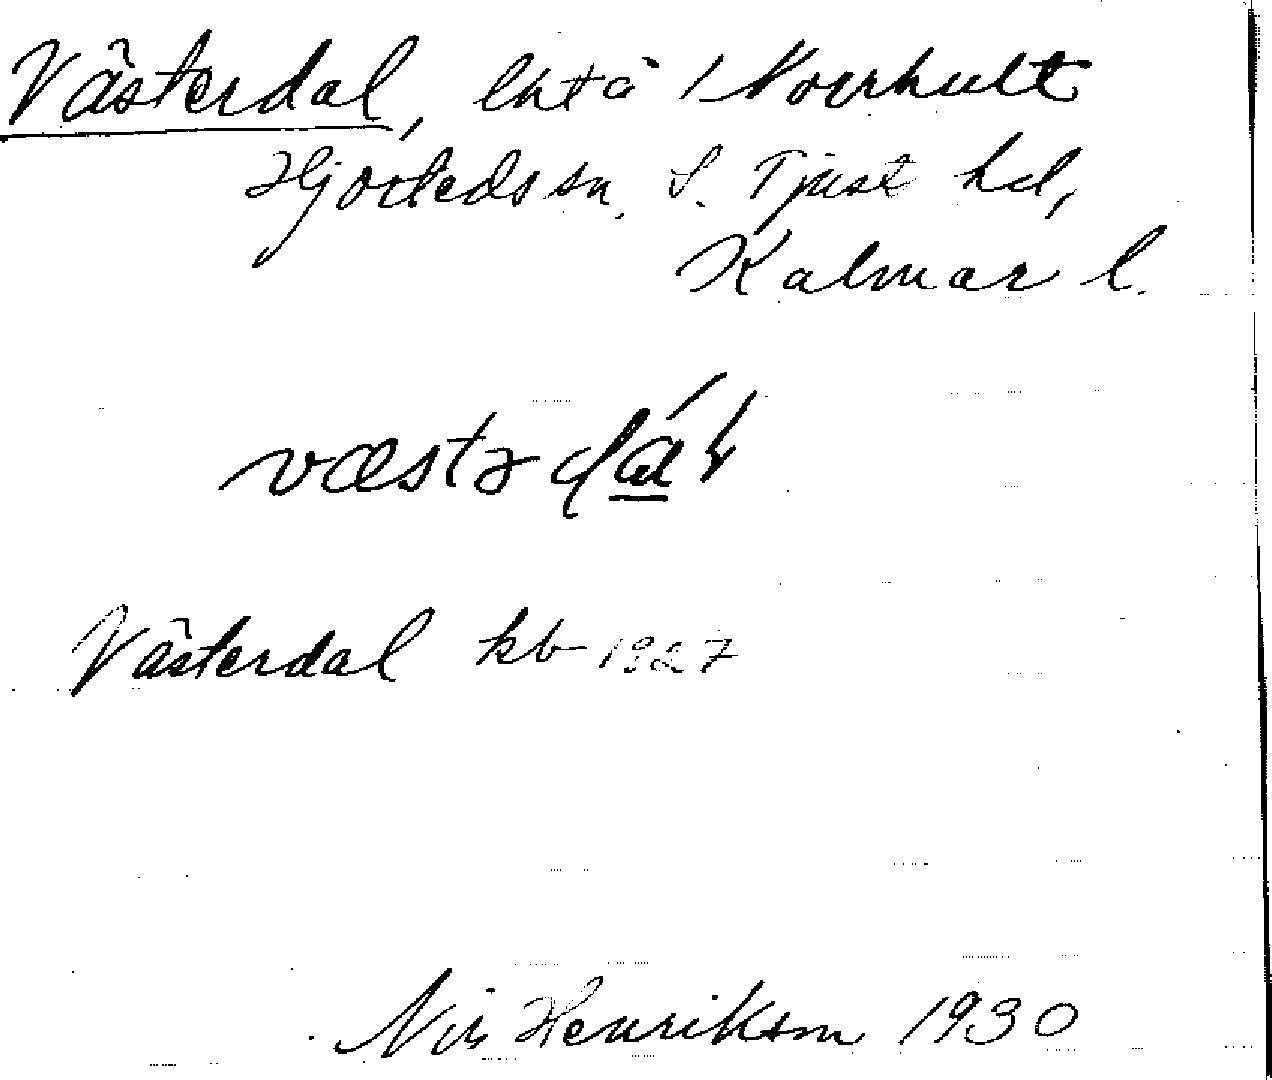 Västerdal, lht å 1 Norrhult
Hjorteds sn, S. Tjust hd,
Kalmar l.
væstədál
Västerdal kb 1927
Nils Henrikson 1930